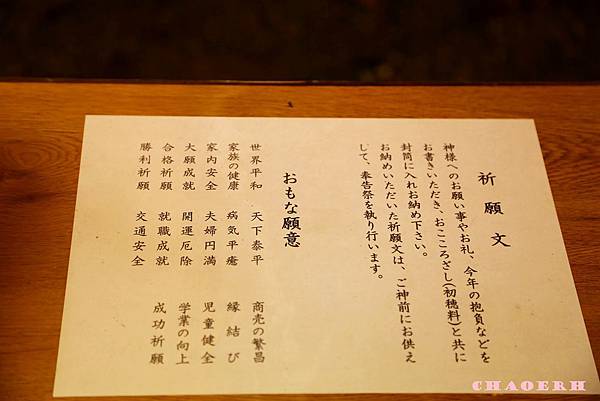 祈願文
神様へのお願い事やお礼、今年の抱負などを
お書きいただき、おこころざし(初穂料)と共に
封筒に入れお納め下さい。
お納めいただいた祈願文は、ご神前にお供え
して、奉告祭を執り行います。
おもな願意
世界平和 天下泰平 商売の繁昌
家族の健康 病気平癒 縁結び
家内安全 夫婦円満 児童健全
大願成就 開運厄除 学業の向上
合格祈願 就職成就 成功祈願
勝利祈願 交通安全
CHAOERH